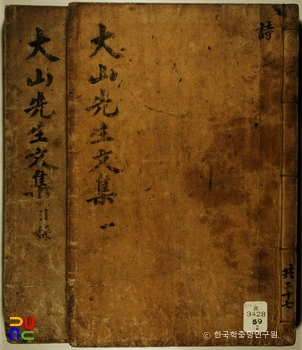 詩
大山先生文集 一
共二十七
大山先生文集
3428
59
ⓒ 한국학중앙연구원